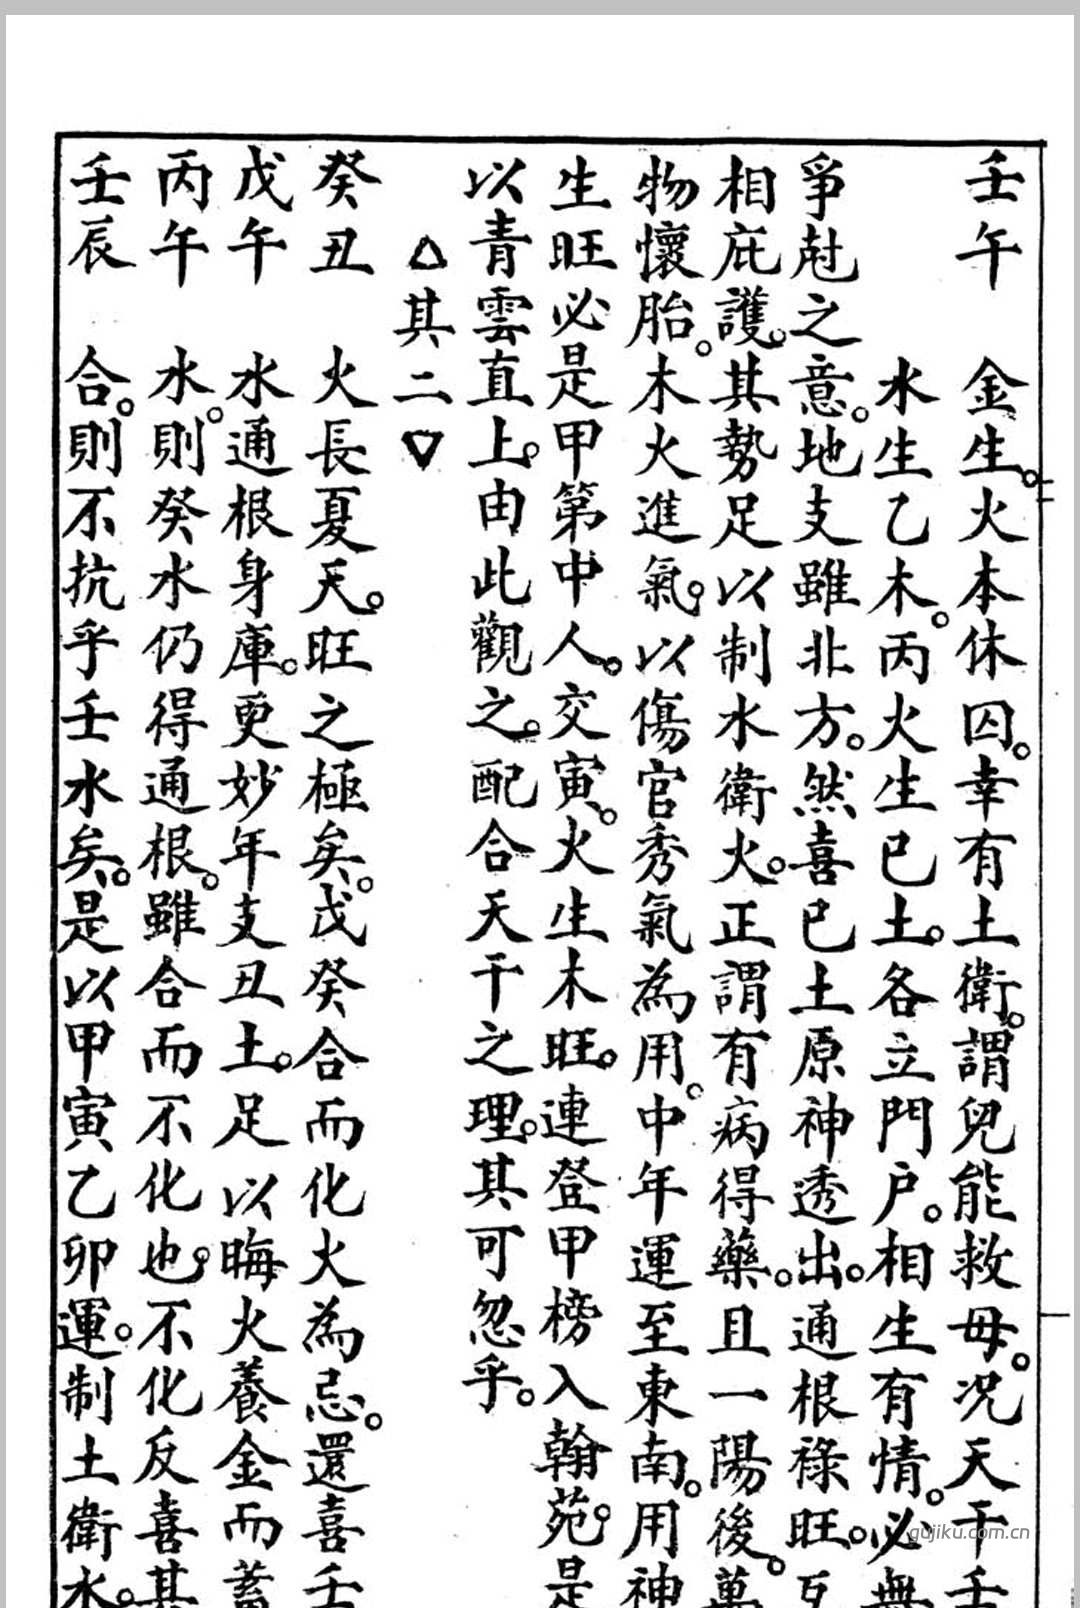 壬午　金生。火本休囚。幸有土衛。謂兒能救母。况天干壬
水生乙木。丙火生巳土。各立門户。相生有情。必無
爭尅之意。地支雖北方。然喜巳土原神透出。通根祿旺。互
相庇護。其勢足以制水衛火。正謂有病得藥。且一陽後。萬
物懷胎。木火進氣。以傷官秀氣為用。中年運至東南。用神
生旺必是甲第中人。交寅。火生木旺。連登甲榜入翰苑。是
以青雲直上。由此觀之。配合天干之理。其可忽乎。
△其二▽
癸丑　火長夏天。旺之極矣。戊癸合而化火為忌。還喜壬
戊午　水通根身庫。更妙年支丑土。足以晦火養金而蓄
丙午　水。則癸水仍得通根。雖合而不化也。不化反喜其
壬辰　合。則不抗乎壬水矣。是以甲寅乙卯運。制土衛水。
gujiku.com.cn